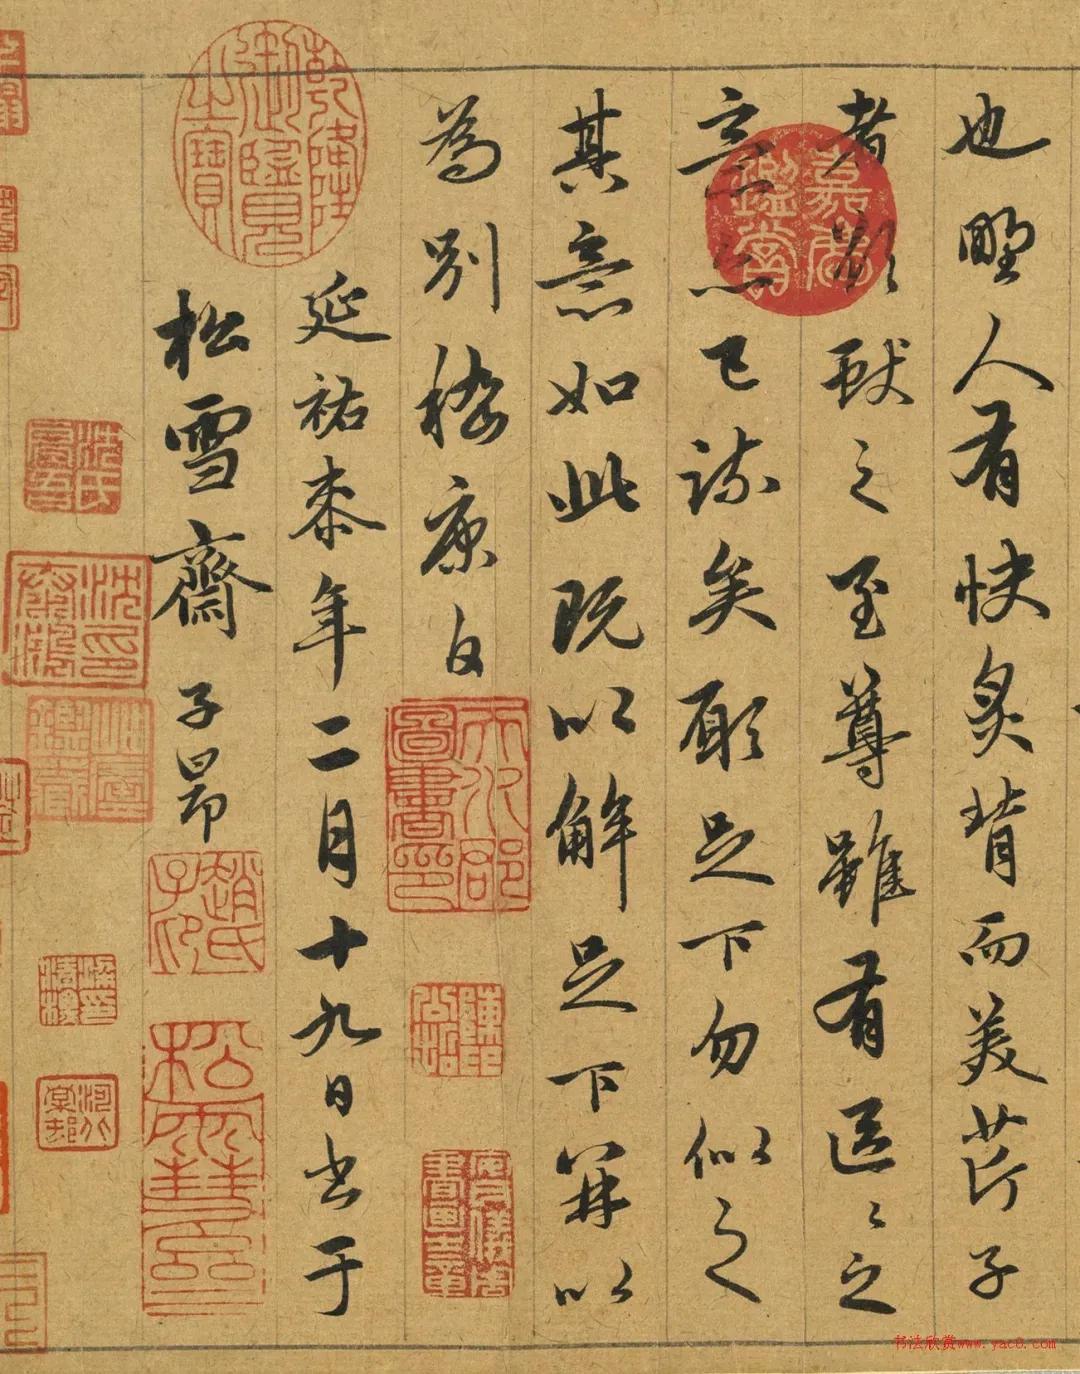 也野人有快炙背而美芹子
者欲献之至尊雖有區〻之
意亦已疎矣願足下勿似之
其意如此既以解足下并以
為別嵇康白
延祐桼年二月十九日書于
松雪齋 子昂
乾隆御覽之寶
嘉慶鑑賞
天水郡圖書印
趙氏子昂
書法欣赏www.yac8.com